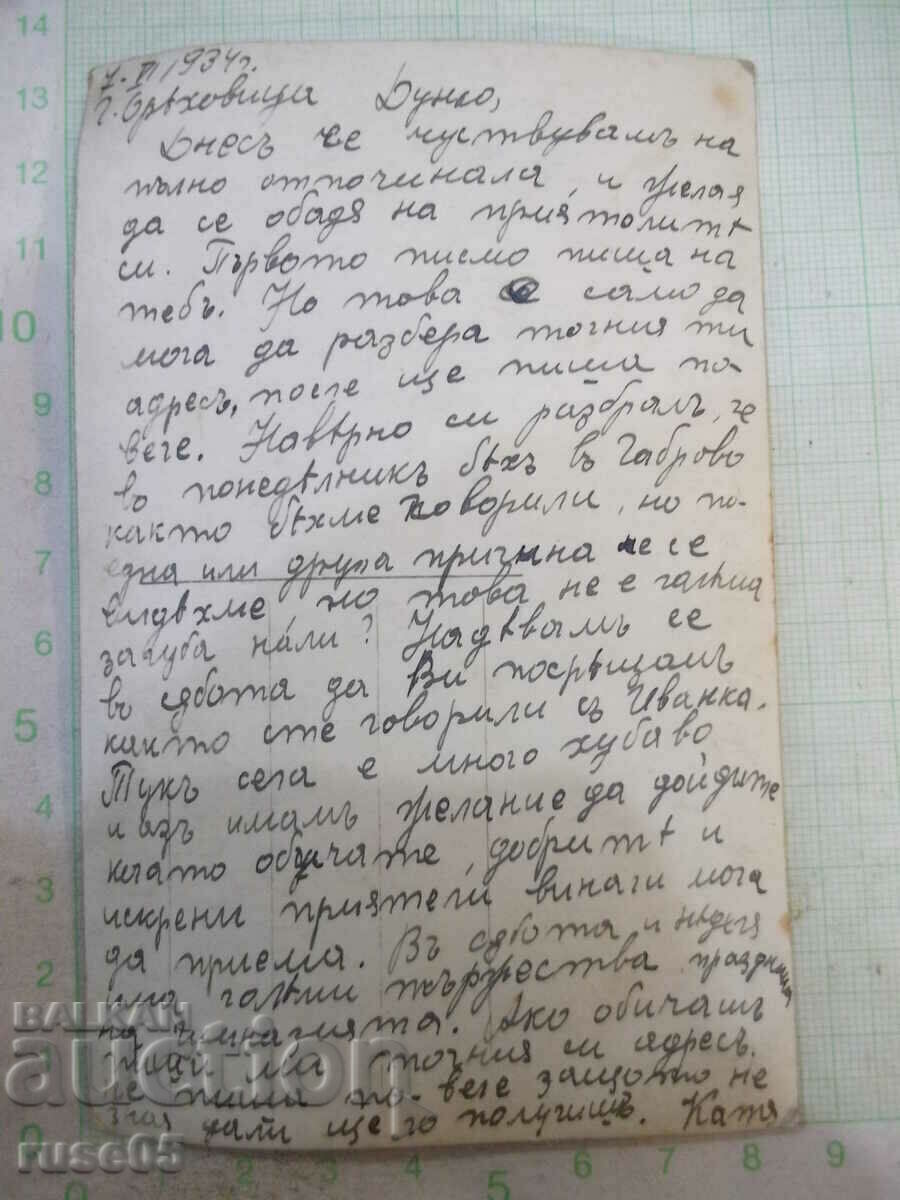 7. VI 1934 г.
г. Орѣховица Дунко,
Днесъ се чуствувамъ на
пълно отпочинала, и желая
да се обадя на приятелитѣ
си. Първото писмо пиша на
тебъ. Но това е само да
мога да разбера точния ти
адресъ, после ще пиша по-
вече. Навѣрно си разбралъ, че
въ понедѣлникъ бѣхъ въ Габрово
както бѣхме говорили, но по
една или друга причина не се
видѣхме но това не е голѣма
загуба нали? Надѣвамъ се
въ сѫбота да Ви посрѣщамъ
както сте говорили съ Иванка.
Тукъ сега е много хубаво
и азъ имамъ желание да дойдите
когато обичате, добритѣ и
искрени приятели винаги мога
да приема. Въ сѫбота и недѣля
има голѣми тържества, праздника
на гимназията. Ако обичашъ
точния си адресъ.
не пиша по-вече защото не
зная дали ще го получишъ. Катя
14
13
12
11
10
9
8
7
6
5
4
3
2
1
0
0 1 2 3 4 5 6 7 8 9
BALKAN
auction
ruse05